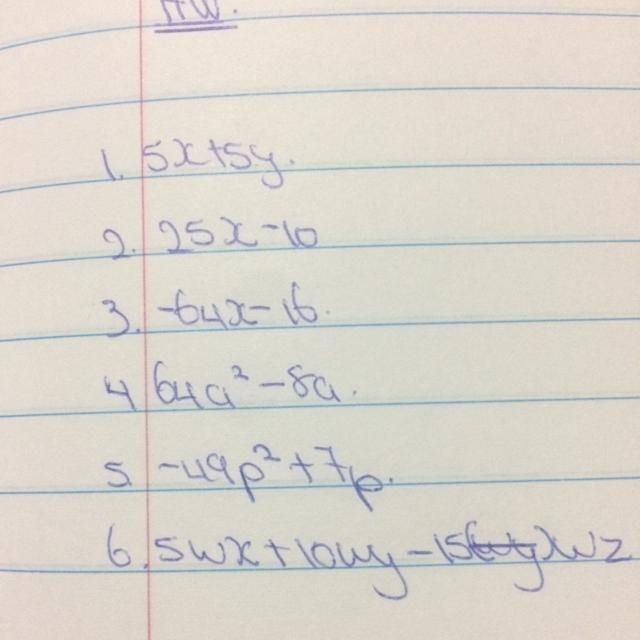 HW.
1. 5x+5y.
2. 25x-10
3. -64x-16.
4 64a²-8a.
5. -49p²+7p.
6. 5wx+10wy-15wz